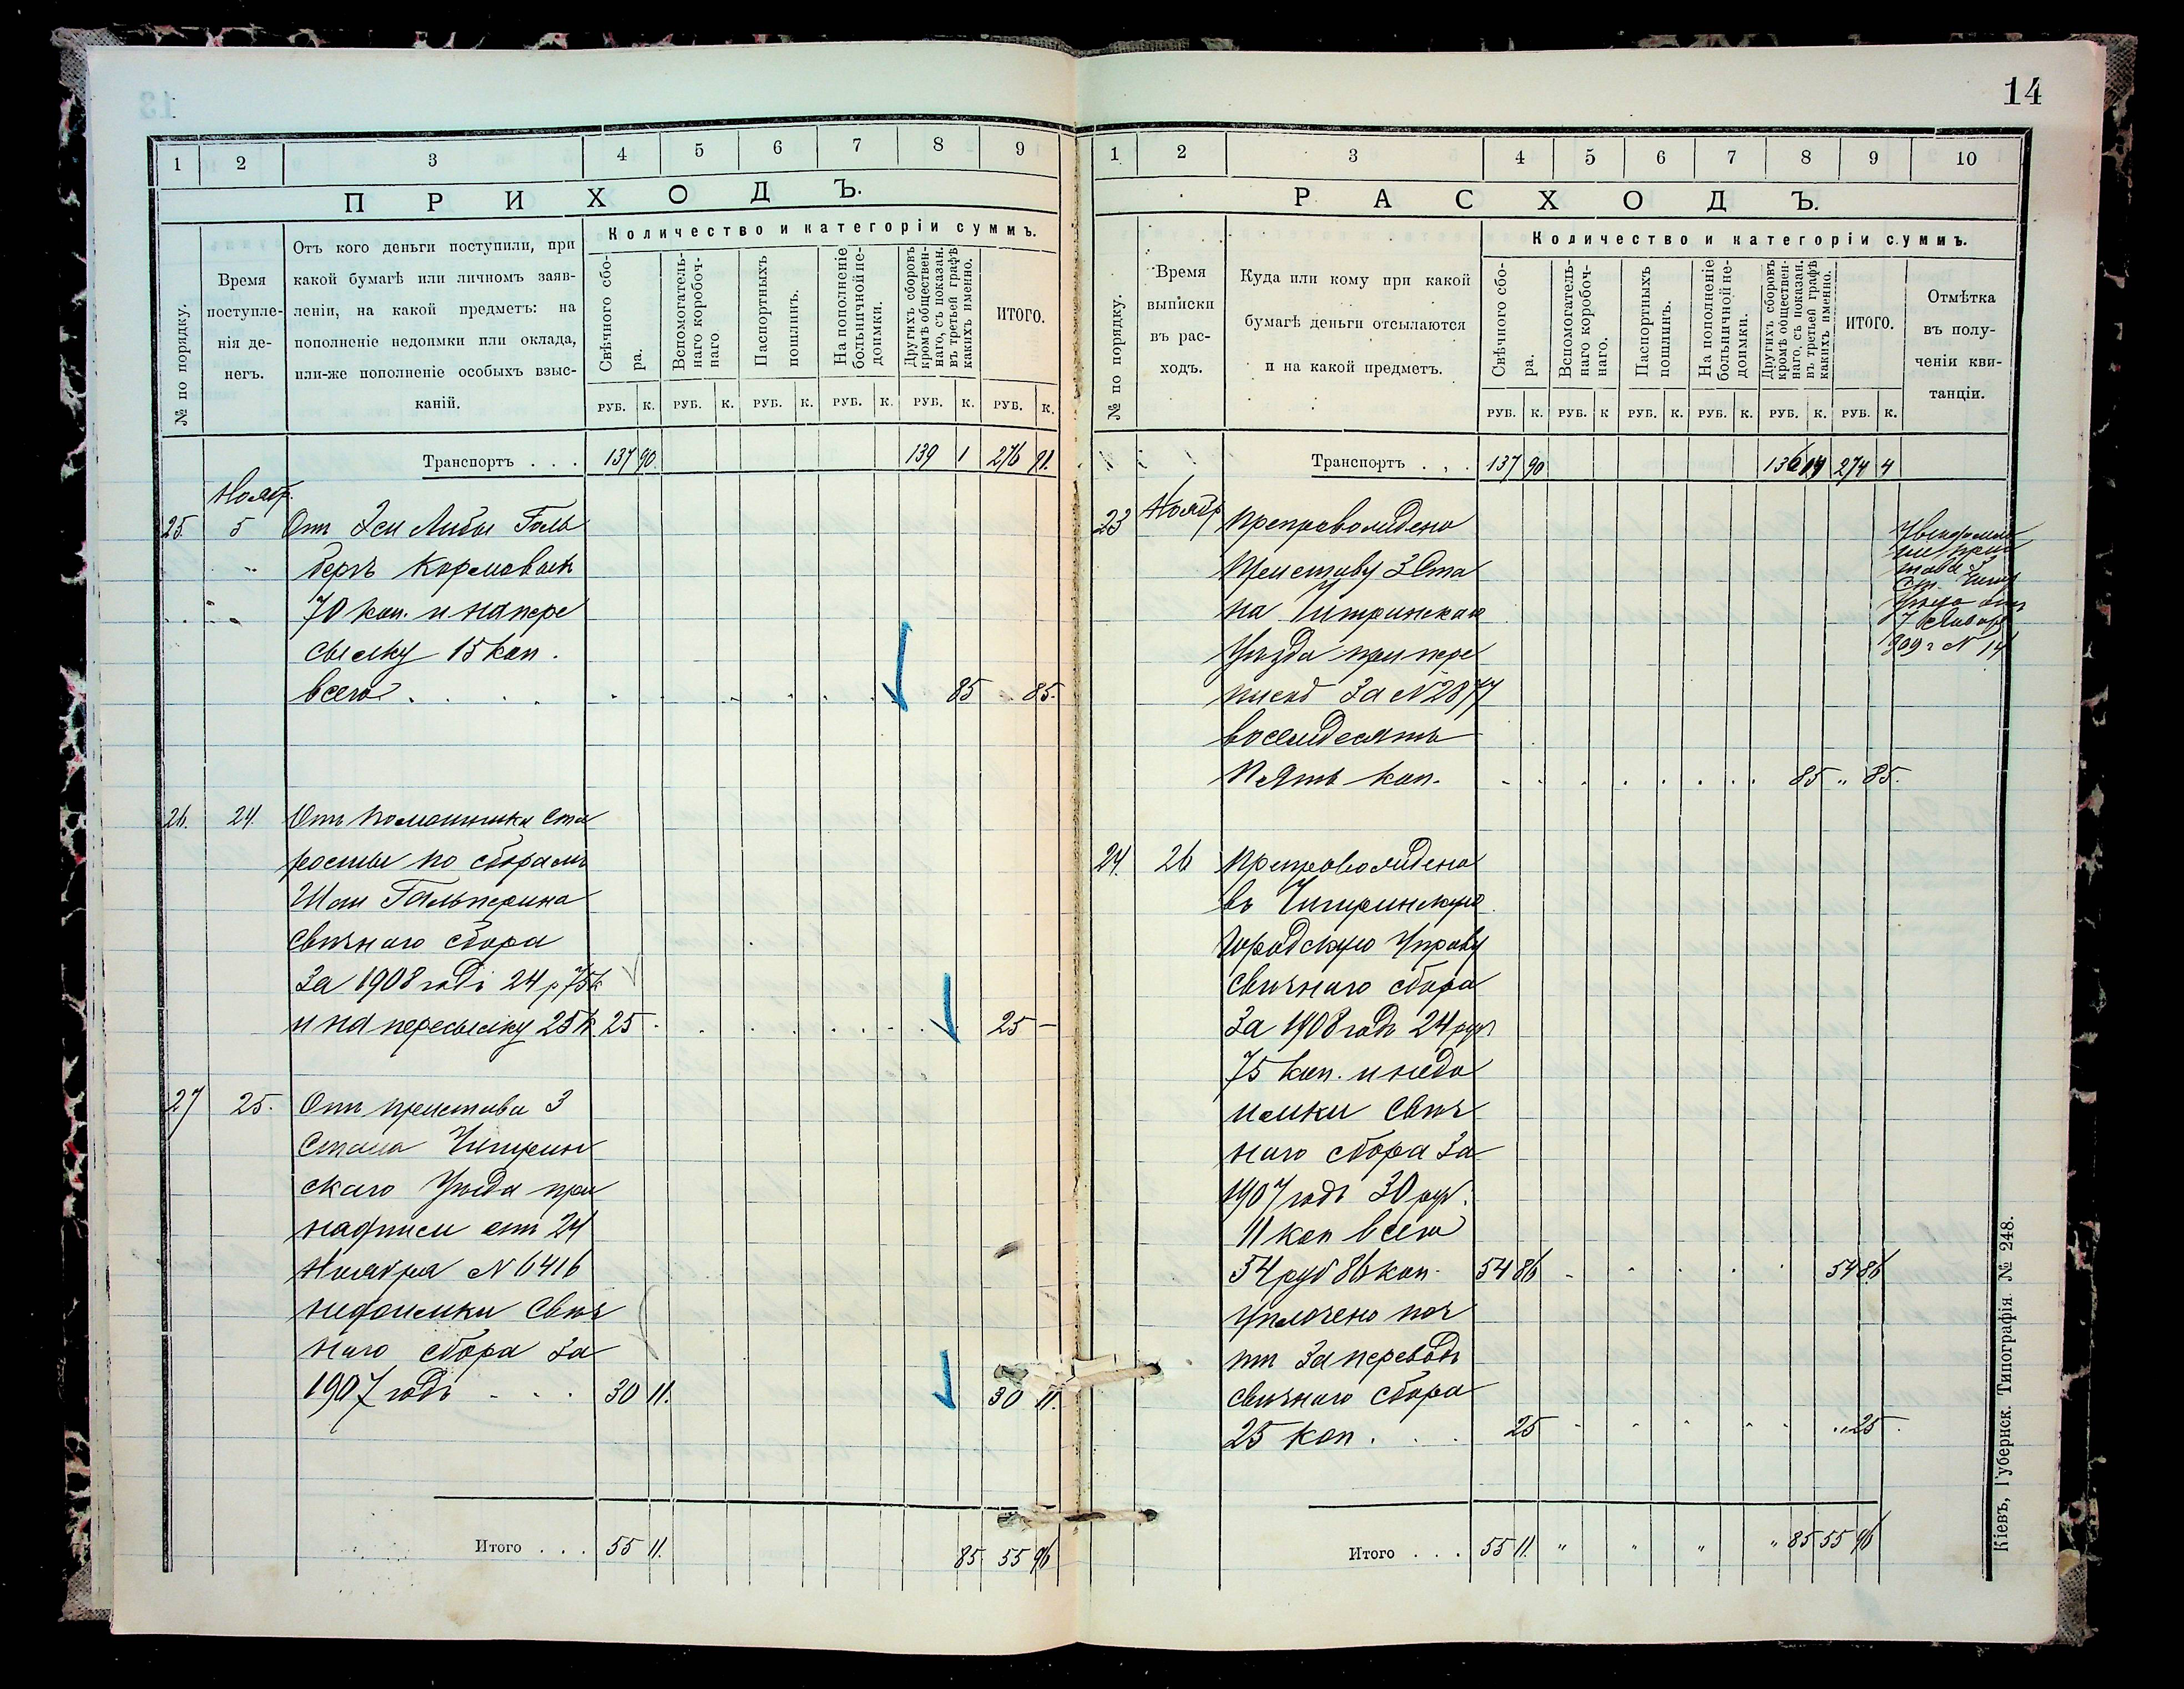 14
1 2 3 4 5 6 7 8 9
ПРИХОДЪ.
№ по порядку.
Время
поступле-
нія де-
негъ.
Отъ кого деньги поступили, при
какой бумагѣ или личномъ заяв-
леніи, на какой предметъ: на
пополненіе недоимки или оклада,
или-же пополненіе особыхъ взыс-
каній.
Количество и категоріи суммъ.
Свѣчного сбо-
ра.
Вспомогатель-
наго коробоч-
наго
Паспортныхъ
пошлинъ.
На пополненіе
больничной не-
доимки.
Другихъ сборовъ
кромѣ обществен-
наго, съ показан.
въ третьей графѣ
какихъ именно.
ИТОГО.
РУБ. К. РУБ. К. РУБ. К. РУБ. К. РУБ. К. РУБ. К.
Транспортъ . . . 137 90 139 1 276 91.
Ноябр.
25. 5 Отъ Эси Либы Голь
бергъ кормовыхъ
70 коп. и на пере
сылку 15 коп.
всего 85 85.
26. 24. Отъ помощника Ста
росты по сборамъ
Шаи Гальперина
свѣчнаго сбора
за 1908 годъ 24 р 75 к
и на пересылку 25 к. 25 - 25 -
27 25. Отъ пристава 3
Стана Чигирин
скаго Уѣзда при
надписи отъ 24
Ноября № 6416
недоимки свѣч
наго сбора за
1907 годъ 30 11. 30 11.
Итого . . . 55 11. 85 55 96
1 2 3 4 5 6 7 8 9 10
РАСХОДЪ.
№ по порядку.
Время
выписки
въ рас-
ходъ.
Куда или кому при какой
бумагѣ деньги отсылаются
и на какой предметъ.
Количество и категоріи суммъ.
Свѣчного сбо-
ра.
Вспомогатель-
наго коробоч-
наго.
Паспортныхъ
пошлинъ.
На пополненіе
больничной не-
доимки.
Другихъ сборовъ
кромѣ обществен-
наго, съ показан.
въ третьей графѣ
какихъ именно.
ИТОГО.
Отмѣтка
въ полу-
ченіи кви-
танціи.
РУБ. К. РУБ. К РУБ. К. РУБ. К. РУБ. К. РУБ. К.
Транспортъ . . . 137 90 136 14 274 4
23 Ноябр Препровождено
Приставу 3 Ста
на Чигиринскаго
Уѣзда при пере
пискѣ за № 2877
восемдесятъ
пять коп. 85 " 85.
става 3
Ст. Чиг
7 Января
1909 г № 14
24. 26 Препровождено
въ Чигиринскую
Городскую Управу
свѣчнаго сбора
за 1908 годъ 24 руб
75 коп. и недо
имки свѣч
наго сбора за
1907 годъ 30 руб.
11 коп всего
54 руб 86 коп. 54 86 54 86
Уплочено поч
тѣ за переводъ
свѣчнаго сбора
25 коп. 25 " 25
Итого . . . 55 11. " " " " 85 55 96
Кіевъ, Губернск. Типографія № 248.